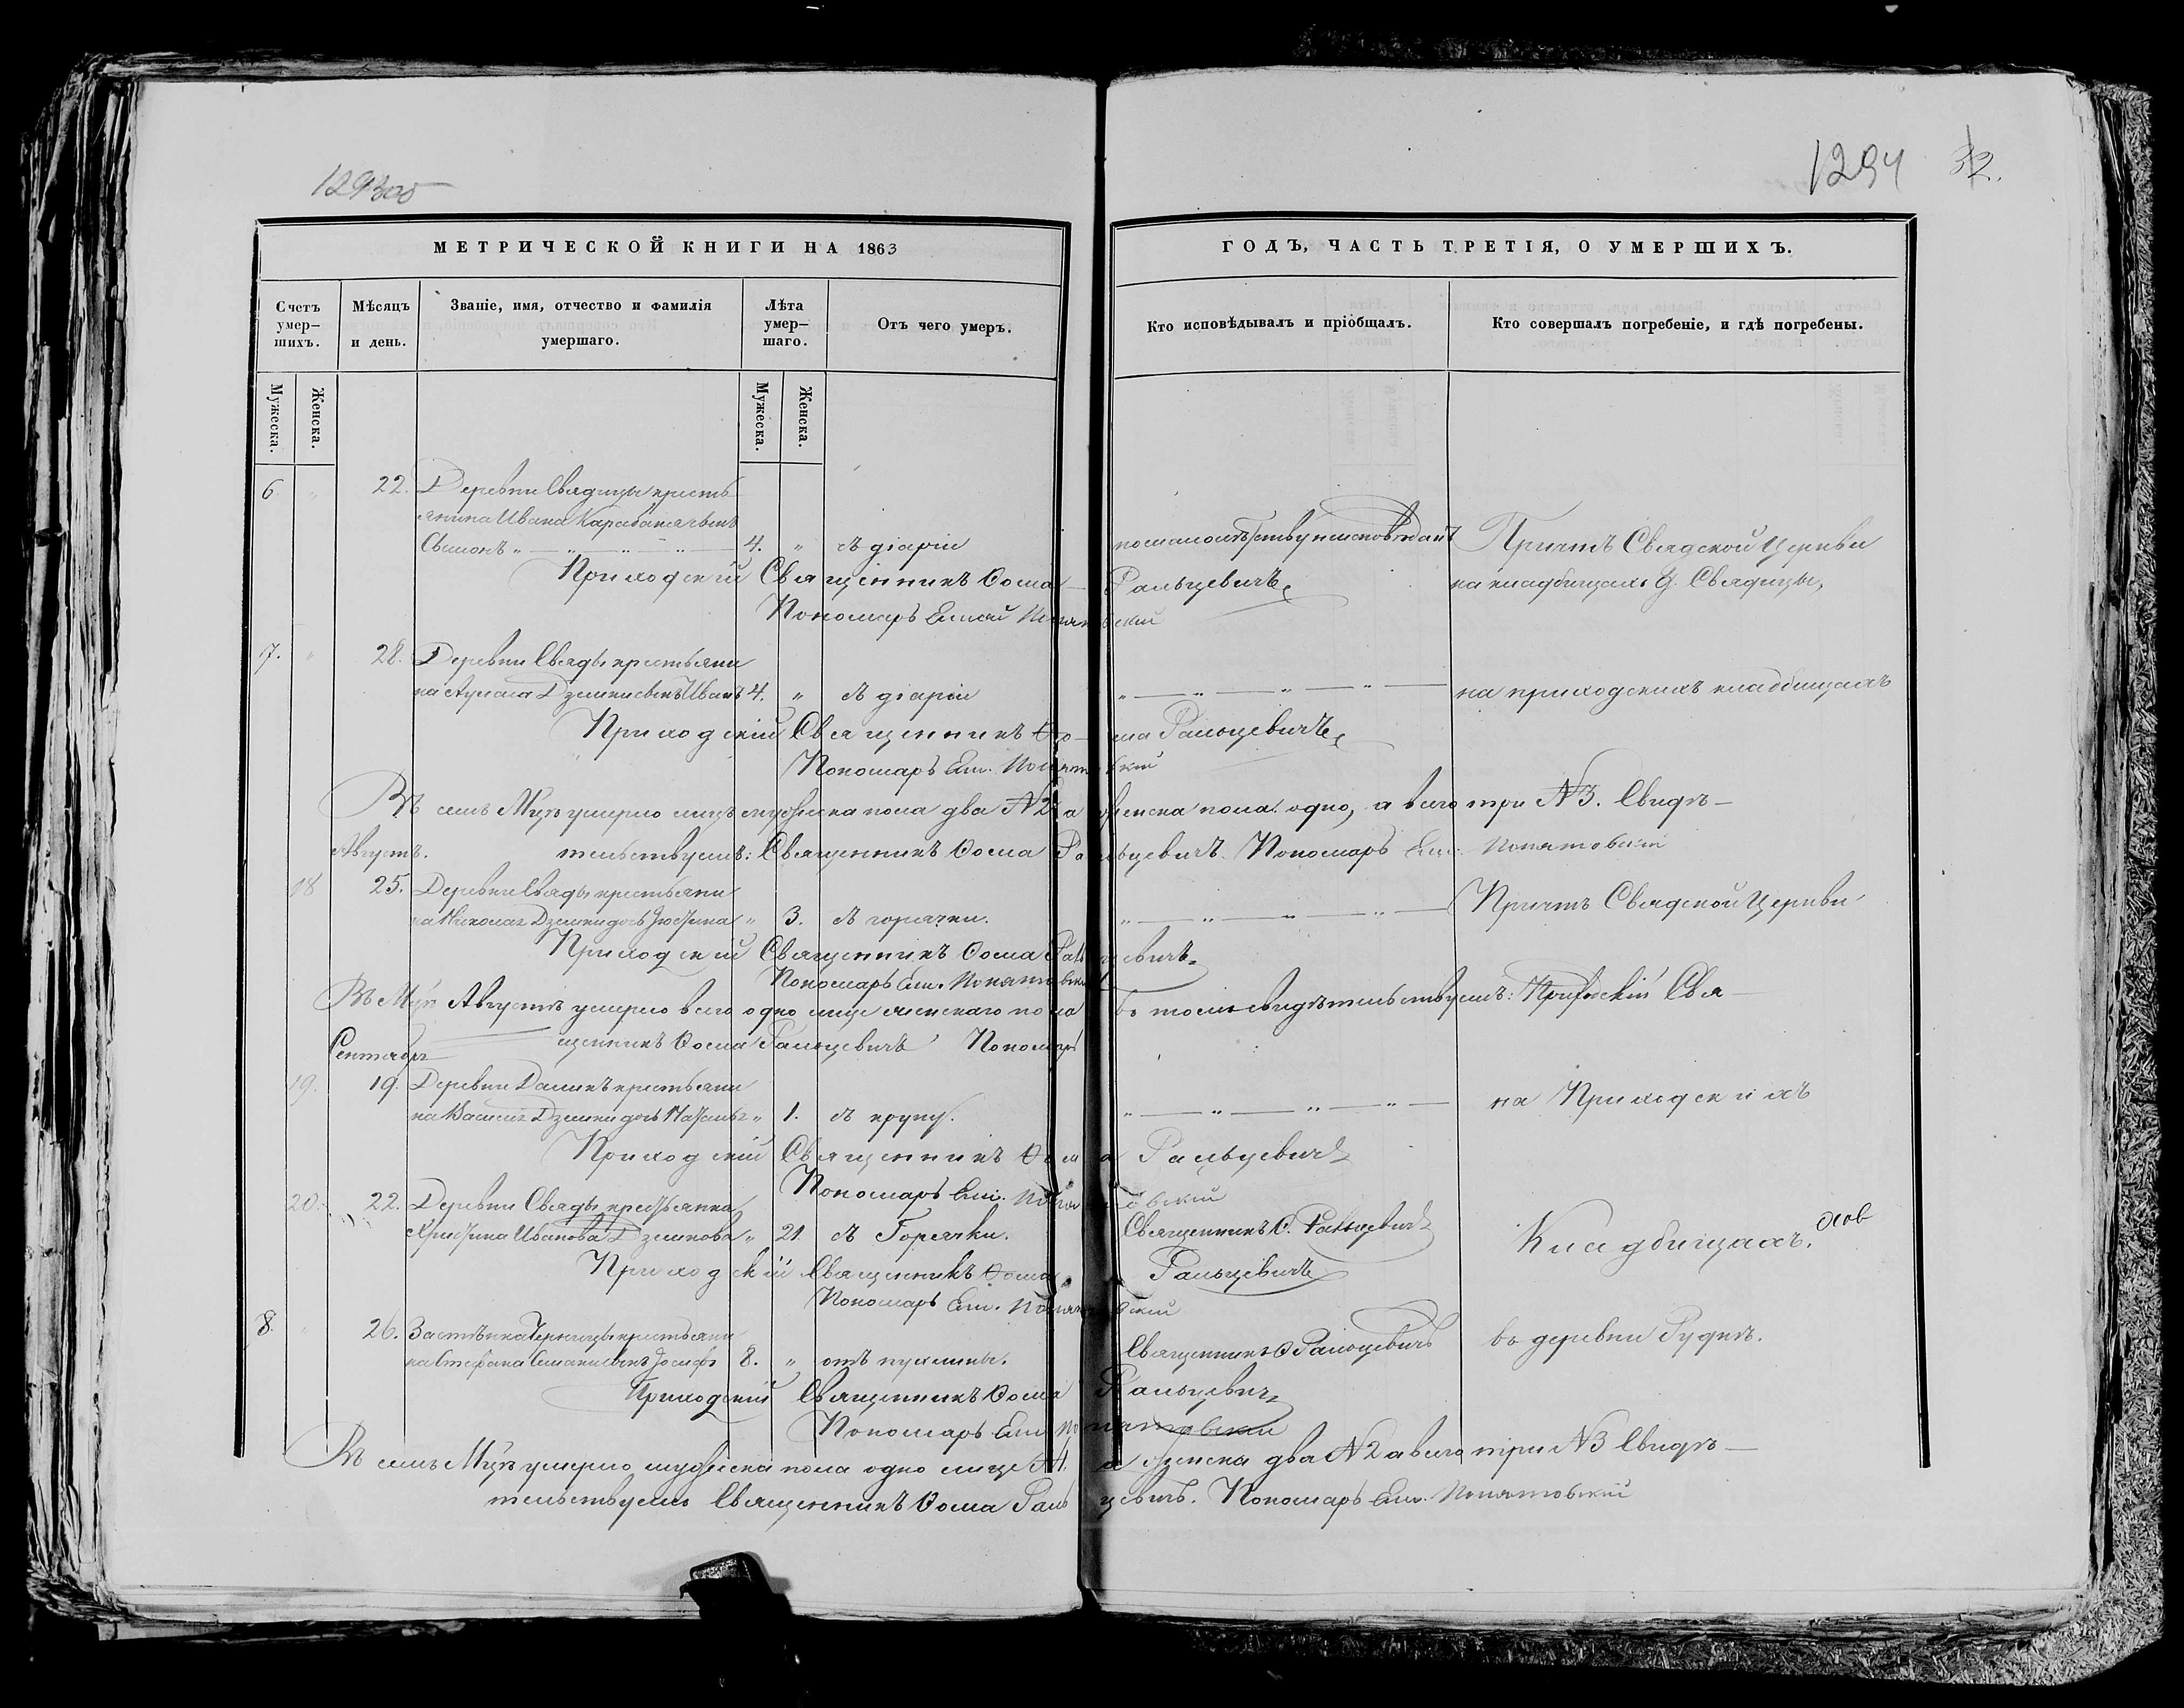 129300
1294 32.
МЕТРИЧЕСКОЙ КНИГИ НА 1863
ГОДЪ, ЧАСТЬ ТРЕТІЯ, О УМЕРШИХЪ.
Счетъ умер–шихъ.
Мѣсяцъ и день.
Званіе, имя, отчество и фамилія умершаго.
Лѣта умер–шаго.
Отъ чего умеръ.
Кто исповѣдывалъ и пріобщалъ.
Кто совершалъ погребеніе, и гдѣ погребены.
Мужеска. Женска. Мужеска. Женска.
6 " 22. Деревни Свядицы кресть
янина Ивана сынъ
Симонъ 4. " съ діаріи
по малолѣтству неисповѣданъ
Причтъ Свядской Церкви
на кладбищахъ д. Свядицы,
Приходскій Священникъ Фома Ральцевичъ
Пономарь Понятовскій
7. " 28. Деревни Свяды крестьяни
на Дземки сынъ Иванъ 4. " съ діаріи
на приходскихъ кладбищахъ
Приходскій Священникъ Фома Ральцевичъ
Пономарь Ем. Понятовскій
Въ семъ Мцѣ умерло лицъ мужеска пола два №2 а женска пола одно, а всего три №3. Свидѣ–
тельствуемъ: Священникъ Фома Ральцевичъ. Пономарь Ем. Понятовскій
Августъ.
18 25. Деревни Свяды крестьяни
на Николая Дземки дочь Іюстина " 3. съ горячки.
Причтъ Свядской Церкви
Приходскій Священникъ Фома Ральцевичъ
Пономарь Ем. Понятовскій
Въ Мцѣ Августѣ умерло всего одно лице женскаго пола въ томъ свидѣтельствуемъ: Приходскій Свя–
щенникъ Фома Ральцевичъ Пономарь
Сентябрь
19. 19. Деревни крестьяни
на Василя Дземки дочь " 1. съ крупу.
на Приходскихъ
Приходскій Священникъ Фома Ральцевичъ
Пономарь Ем. Понятовскій
20. 22. Деревни Свяды крестьянка
Христина Иванова Дземкова " 21. съ Горячки.
Священникъ Ѳ. Ральцевичъ
Кладбищахъ.
Приходскій Священникъ Фома Ральцевичъ
Пономарь Ем. Понятовскій
8. " 26. Застѣнка крестьяни
на Стефана сынъ Іосифъ 8. " отъ пухлины.
Священникъ Ѳ Ральцевичъ
въ деревни Рудкѣ.
Приходскій Священникъ Фома Ральцевичъ
Пономарь Ем Понятовскій
Въ семъ Мцѣ умерло мужеска пола одно лице а женска два №2 а всего три №3 Свидѣ–
тельствуемъ Священникъ Фома Ральцевичъ. Пономарь Ем. Понятовскій